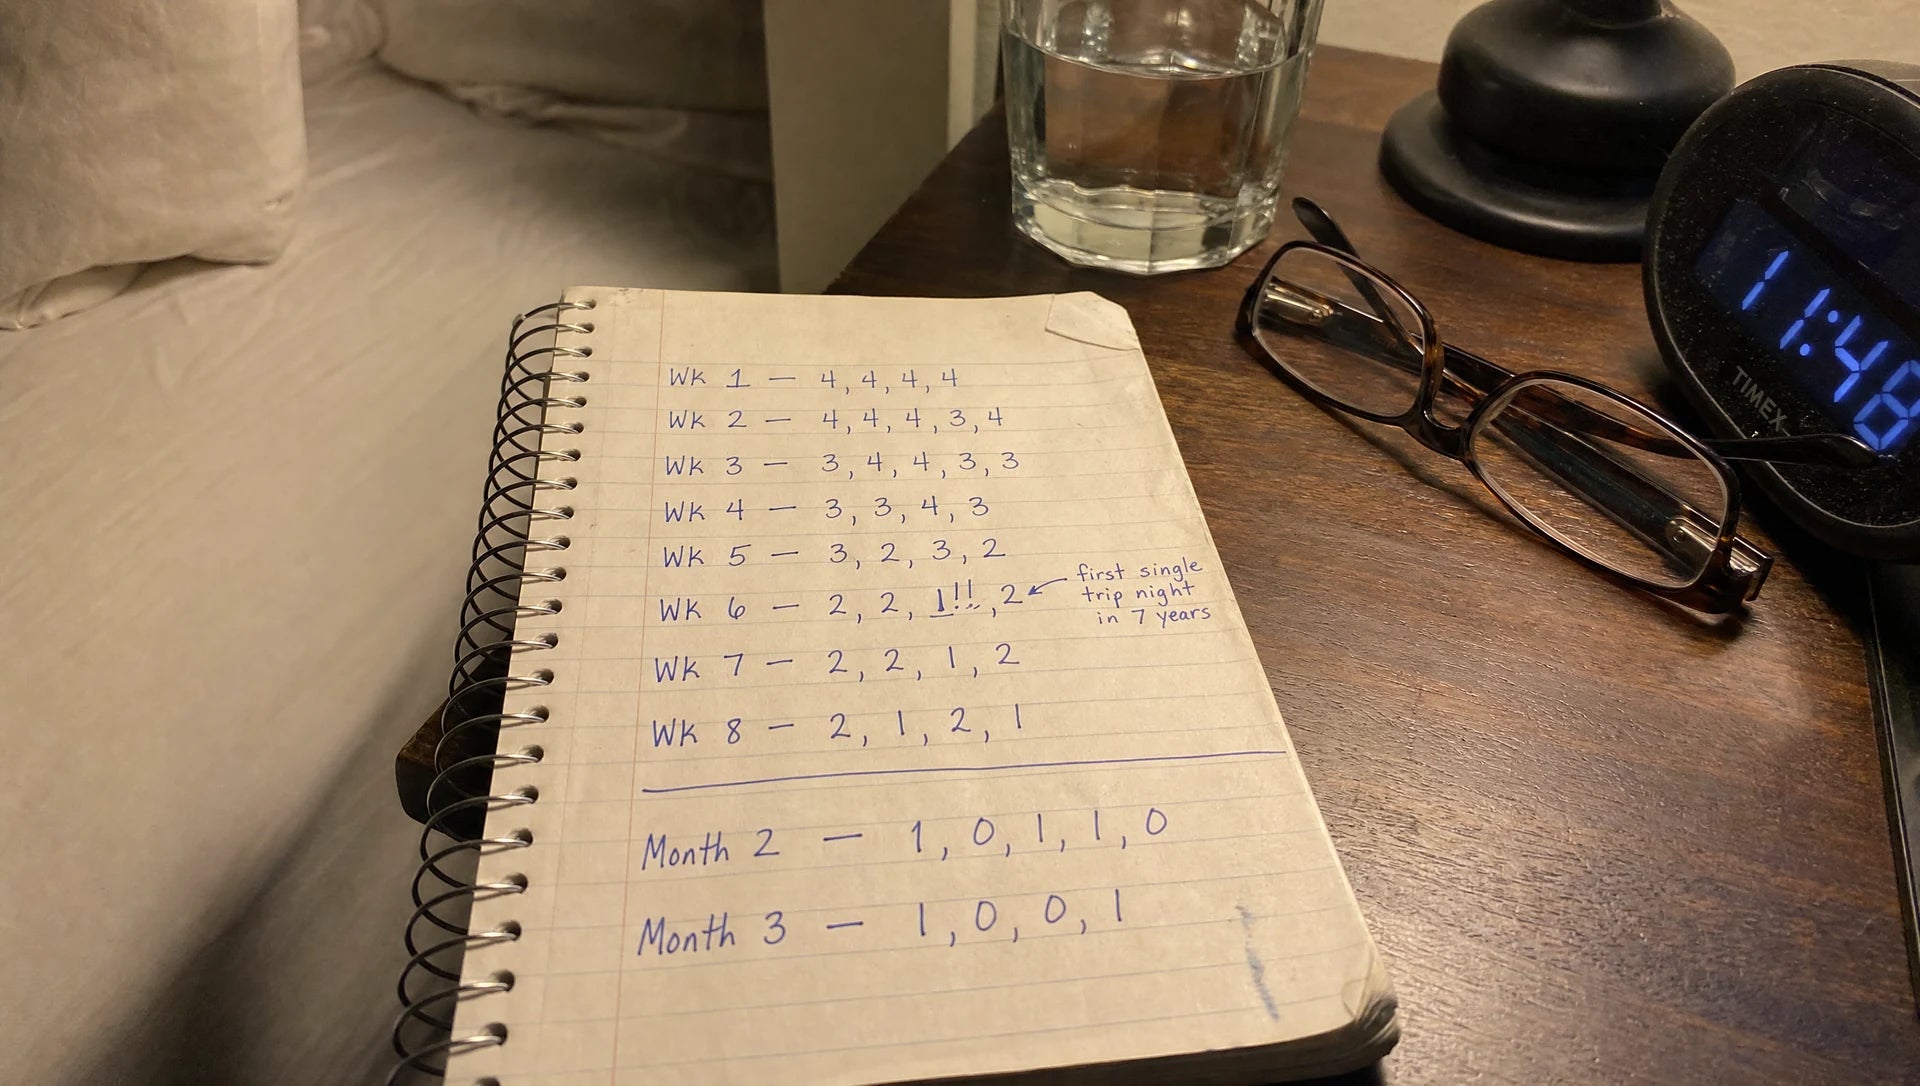 Wk 1 — 4, 4, 4, 4
Wk 2 — 4, 4, 4, 3, 4
Wk 3 — 3, 4, 4, 3, 3
Wk 4 — 3, 3, 4, 3
Wk 5 — 3, 2, 3, 2
Wk 6 — 2, 2, 1!!!, 2
first single
trip night
in 7 years
Wk 7 — 2, 2, 1, 2
Wk 8 — 2, 1, 2, 1
Month 2 — 1, 0, 1, 1, 0
Month 3 — 1, 0, 0, 1
11:48
TIMEX